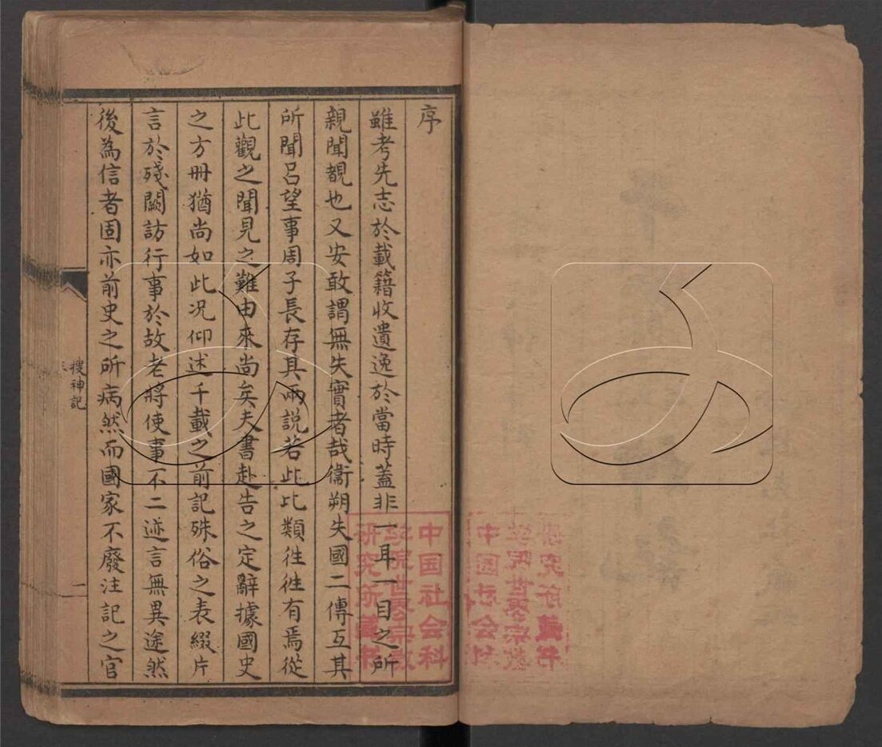 序
雖考先志於載籍收遺逸於當時蓋非一耳一目之所
親聞覩也又安敢謂無失實者哉衞朔失國二傳互其
所聞呂望事周子長存其兩説若此比類徃徃有焉從
此觀之聞見之難由來尚矣夫書赴告之定辭據國史
之方冊猶尚如此况仰述千載之前記殊俗之表綴片
言於殘闕訪行事於故老將使事不二迹言無異途然
後為信者固亦前史之所病然而國家不廢注記之官
搜神記
一
中国社会科
学院世界宗教
研究所藏书